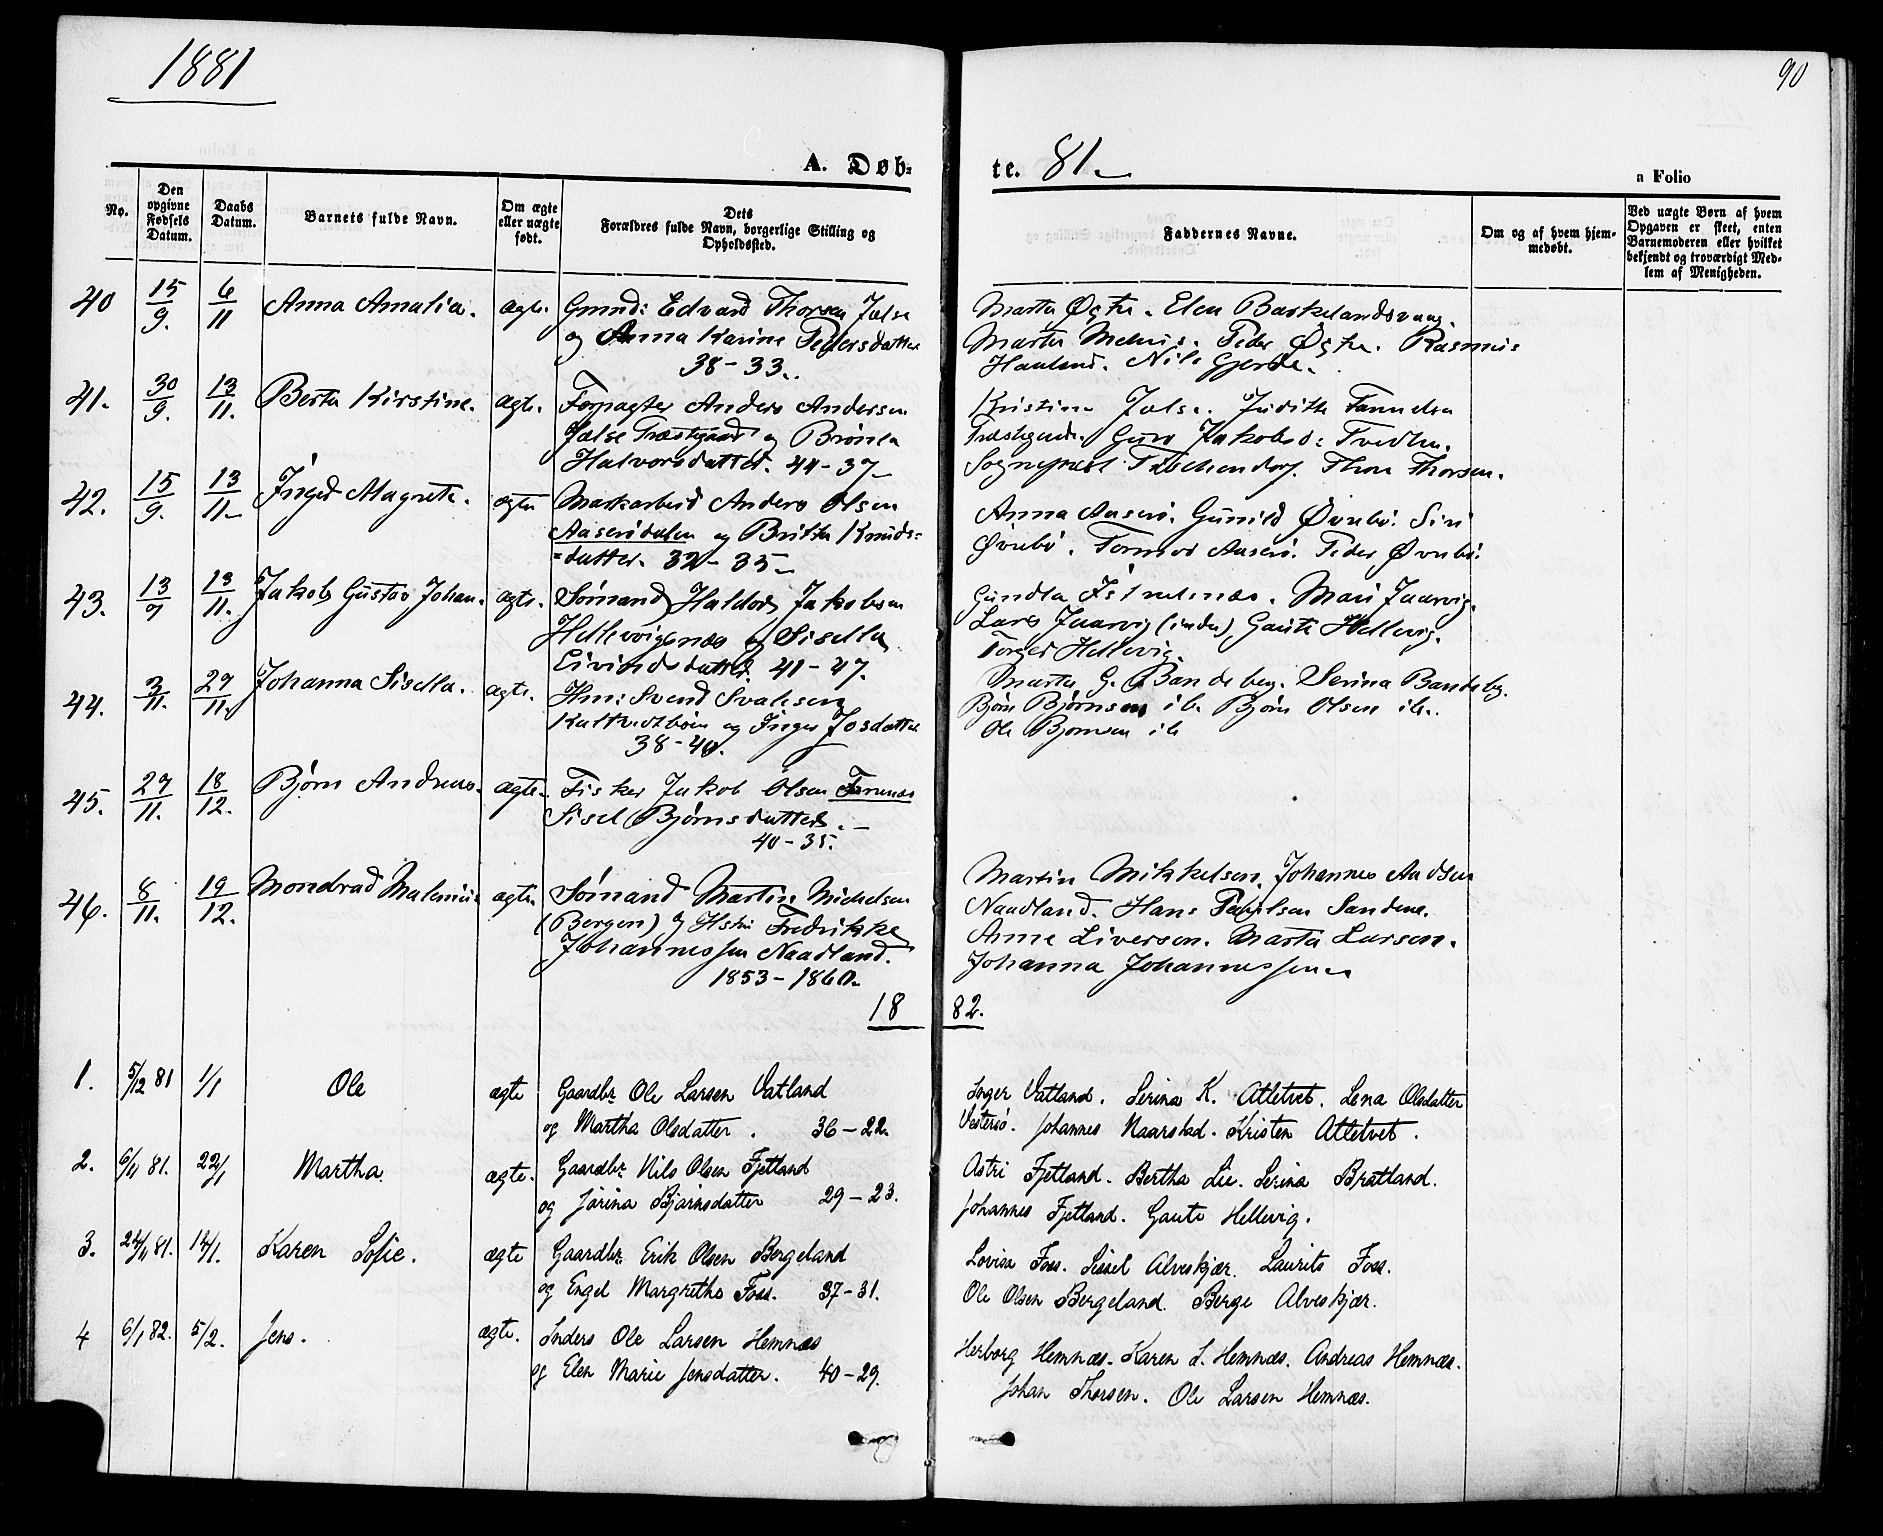 1881
90
A. Døb=
te. 81.
a Folio
No.
Den opgivne Fødsels Datum.
Daabs Datum.
Barnets fulde Navn.
Om ægte eller uægte født.
Dets
Forældres fulde Navn, borgerlige Stilling og Opholdssted.
Faddernes Navne.
Om og af hvem hjemmedøbt.
Ved uægte Børn af hvem Opgaven er skeet, enten Barnemoderen eller hvilket bekjendt og troværdigt Medlem af Menigheden.
40 15/9. 6/11 Anna Amalia. ægte. Gmd: Edvard Thorsen Jælse
og Anna Karine Pedersdatter
38-33.
Marta Øgtr. Elen Barkelandsvaag.
Marta Peder Øgtr. Rasmus
Haaland. Nils Gjerde.
41. 30/9. 13/11. Berta Kirstine. ægte. Forpagter Anders Andersen
Jælse Præstgaard og Brønla
Halvorsdatter. 44-37
Kristine Jælse. Juditte
Guro Jakobsd:
Sogneprest Thore Thorsen.
42. 15/9. 13/11 Inger Magrete. ægte Markarbeid Anders Olsen
Aaserødalen og Britta Knuds=
=datter. 32-35
Anna Aaserø. Gunild Øvrebø. Siri
Øvrebø. Tormod Aaserø. Peder Øvrebø.
43. 13/9 13/11. Jakob Gustav Johan. ægte. Sømand Haldor Jakobsen
Hellevigsnæs og Sisella
Eivindsdatter. 41-47.
Gundla Mari Jaarvig.
Lars Jaarvig (indre), Gaute Hellevig.
Torger Hellevig.
44. 3/11. 27/11. Johanna Sisella. ægte. Hm: Svend Svalesen
og Inger Josdatter
38-40.
Marta G. Bandeberg. Serina Bandeberg.
Bjørn Bjørnsen ib. Bjørn Olsen ib.
Ole Bjørnsen ib
45. 27/11. 18/12. Bjørn Andreas. ægte. Fisker Jakob Olsen Foreneset
Sisel Bjørnsdatter.
40-35.
46. 8/11. 19/12. Mondrad ægte. Sømand Martin Michelsen
(Bergen) og Hstru Fredrikke
Johannessen Naadland.
1853-1860.
Martin Mikkelsen. Johannes Aadsen
Naadland. Hans Sandene.
Anne Liversen. Marta Larsen.
Johanna Johannessen
1882.
1. 5/12 81 1/1 Ole ægte Gaardbr. Ole Larsen Vatland
og Martha Olsdatter. 36-22.
Inger Vatland. Serina K. Atletvet. Lena Olsdatter
Vestersø. Johannes Naarstad. Kristen Atletvet.
2. 6/11 81. 22/1 Martha ægte. Gaardbr. Nils Olsen Fjetland
og Jorina Bjarnsdatter 29-23.
Astri Fjetland. Bertha Lie. Serina Bratland.
Johannes Fjetland. Gaute Hellevig.
3. 24/11 81. 14/1. Karen Sofie. ægte Gaardbr. Erik Olsen Bergeland
og Engel Margrethe Foss. 37-31.
Lovise Foss. Sissel Alveskjær. Laurits Foss.
Ole Olsen Bergeland. Berge Alveskjær.
4 6/1 82. 5/2. Jens. ægte. Inders Ole Larsen Hemnæs
og Elen Marie Jensdatter. 40-29.
Herborg Hemnæs. Karen L. Hemnæs. Andreas Hemnæs.
Johan Thorsen. Ole Larsen Hemnæs.